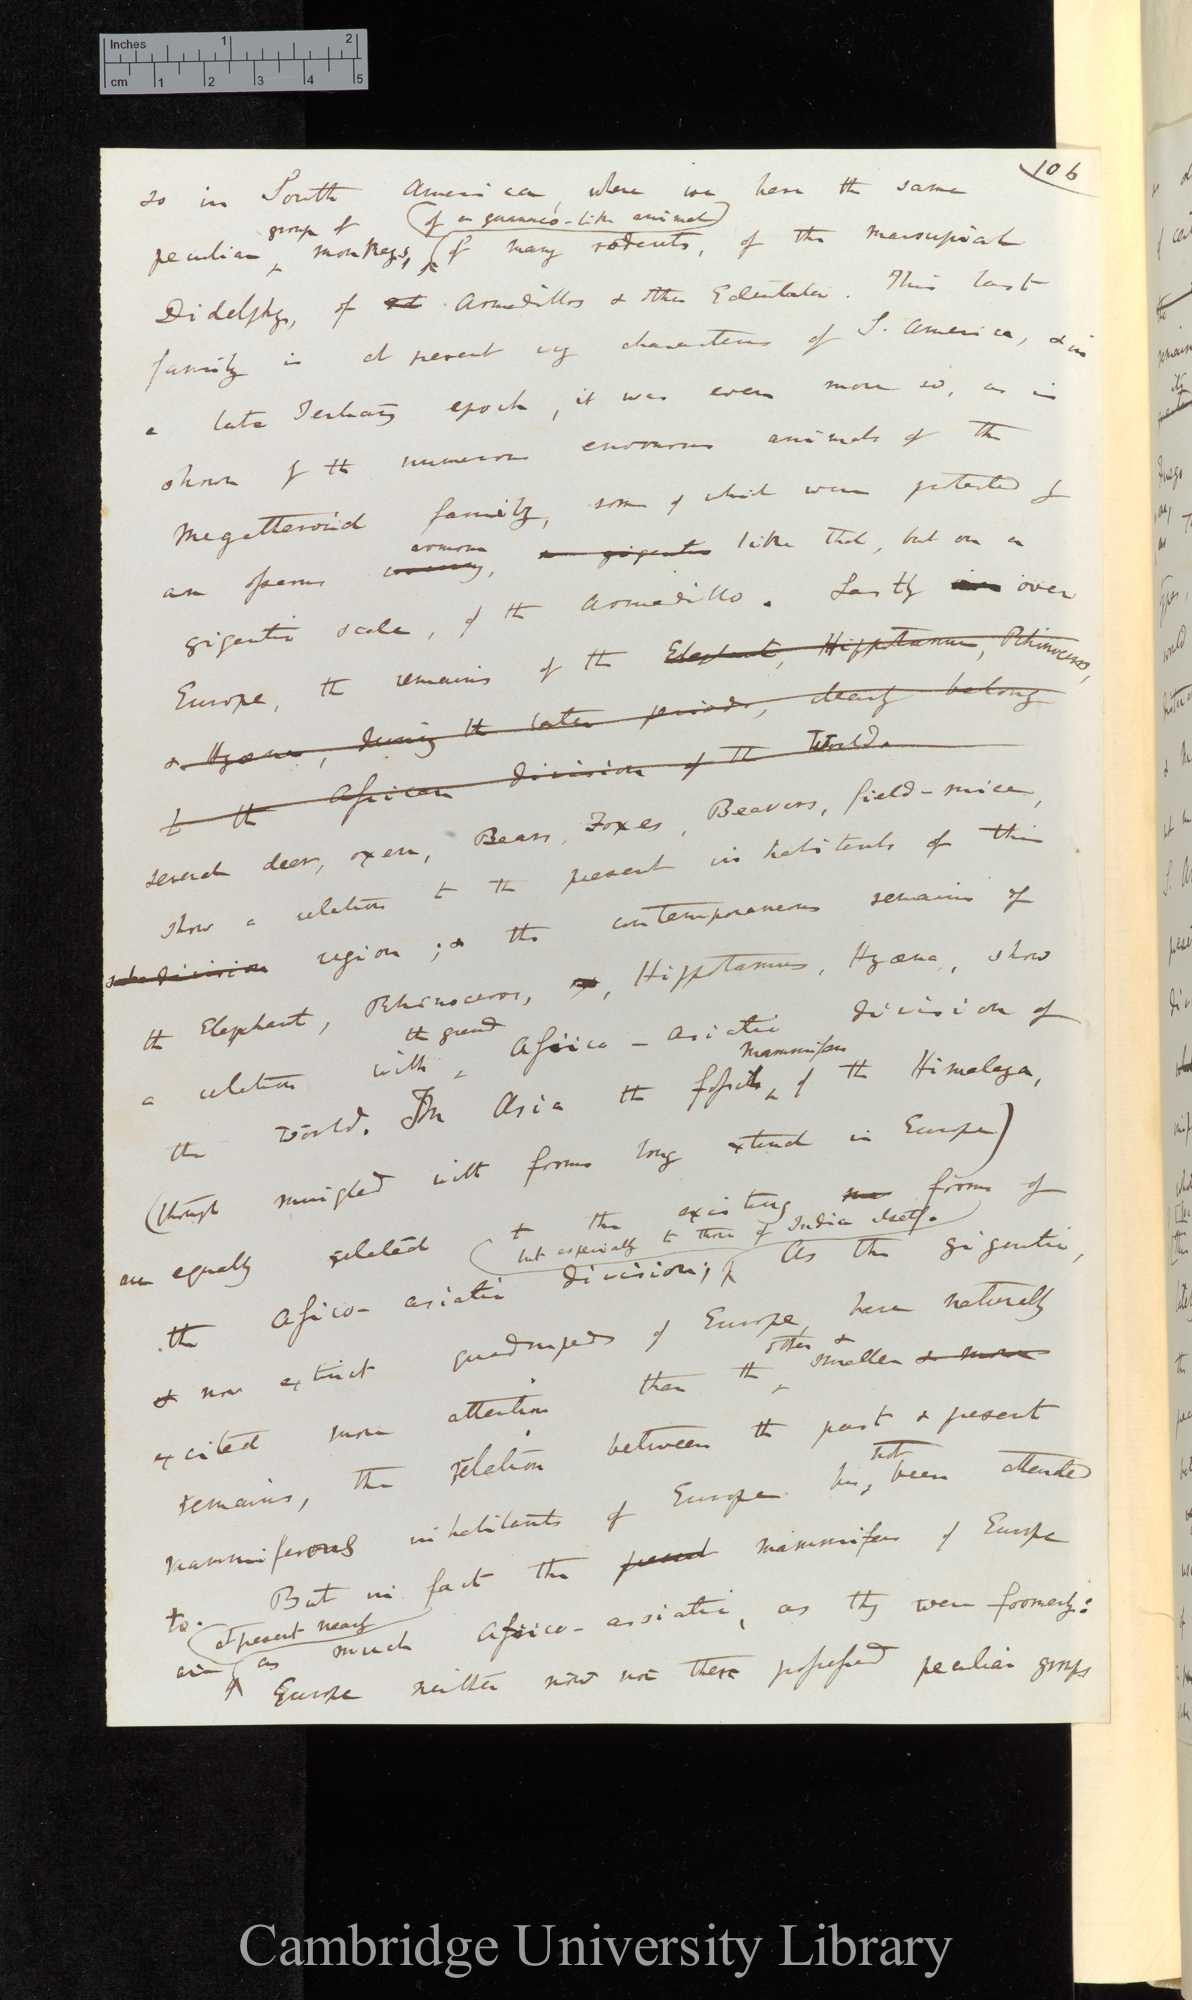 Inches 1 2
cm 1 2 3 4 5
106
so in South America, where we have the same
group of (of a guanaco-like animal)
peculiar monkeys, of many rodents, of the marsupial
Didelphys, of Armadillos & other Edentata. This last
family is at present very characteristic of S. America, & in
a late Tertiary epoch, it was even more so, as is
shown by the numerous enormous animals of the
Megatheroid family, some of which were protected by
armour
an osseous, as gigantic like that, but on a
gigantic scale, of the Armadillo. Lastly over
Europe, the remains of the Elephant, Hippotamus, Rhinoceros,
& Hyæna, during the later periods, clearly belong
to the African division of the World.
several deer, oxen, Bears, Foxes, Beavers, field-mice,
show a relation to the present inhabitants of this
subdivision region; & the contemporaneous remains of
the Elephant, Rhinoceros, Hippotamus, Hyæna, show
the grand
a relation with Africo-asiatic division of
mammifers
the World. In Asia the fossil of the Himalaya,
(though mingled with forms long extinct in Europe)
are equally related to the existing forms of
but especially to those of India itself.
the Africo-asiatic division; As the gigantic,
& now extinct quadrupeds of Europe, have naturally
other &
excited more attention than the smaller & more
remains, the relation between the past & present
not
mammiferous inhabitants of Europe has been attended
to. But in fact the present mammifers of Europe
at present nearly
are as much Africo-assiatic, as they were formerly:
Europe neither now nor there possessed peculiar groups
Cambridge University Library